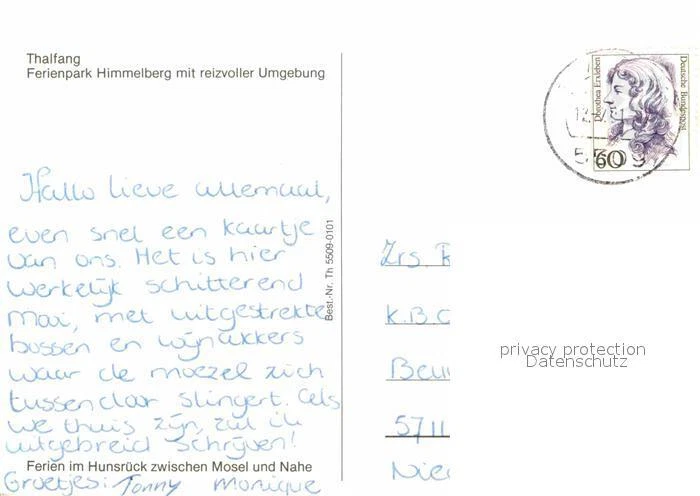 Thalfang
Ferienpark Himmelberg mit reizvoller Umgebung
Hallo lieve allemaal,
even snel een kaartje
van ons. Het is hier
werkelijk schitterend
mooi, met uitgestrekte
bossen en wijnakkers
waar de moezel zich
tussendoor slingert. Als
we thuis zijn, zul ik
uitgebreid schrijven!
Ferien im Hunsrück zwischen Mosel und Nahe
Groetjes: Tonny Monique
Best.-Nr. Th 5509-0101
Dorothea Erxleben
Deutsche Bundespost
60
Zrs.
K.B.
5711
privacy protection
Datenschutz